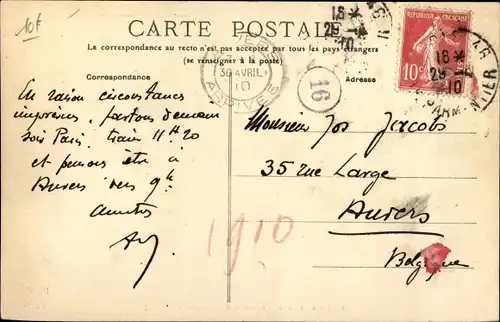 10f
CARTE POSTALE
La correspondance au recto n'est pas acceptée par tous les pays étrangers
(se renseigner à la poste)
Correspondance
RÉPUBLIQUE FRANÇAISE
10
16*
29 -4
10
16*
29
10
30 AVRIL
10
ARRIVÉE
16
En raison circonstances
imprévues, partons demain
soir Paris, train 11h20
et pensons être à
Anvers vers 9h
Amitiés
Monsieur Jos Jacobs
35 rue Large
Anvers
Belgique
1910